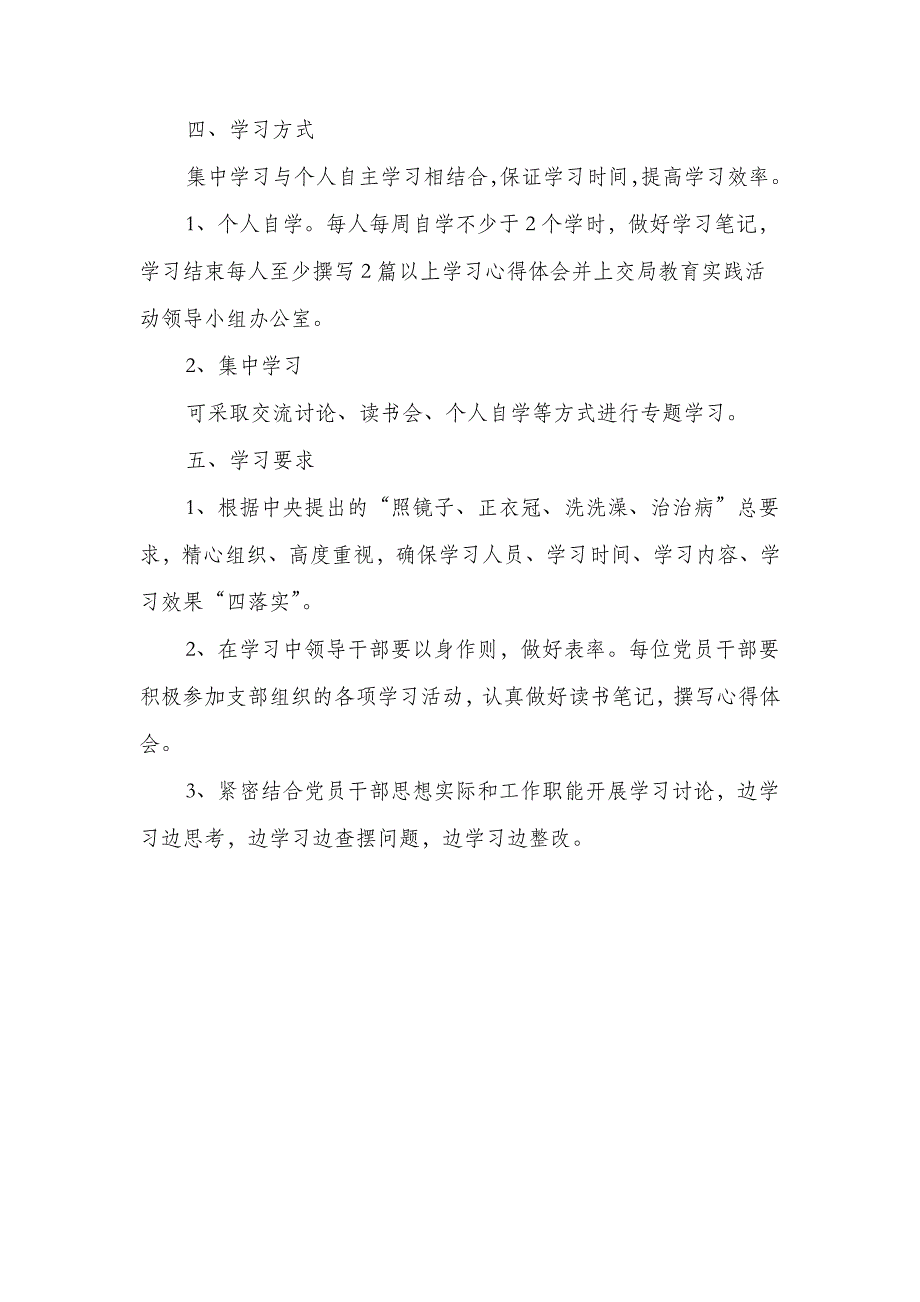 四、学习方式
集中学习与个人自主学习相结合,保证学习时间,提高学习效率。
1、个人自学。每人每周自学不少于 2 个学时，做好学习笔记，
学习结束每人至少撰写 2 篇以上学习心得体会并上交局教育实践活
动领导小组办公室。
2、集中学习
可采取交流讨论、读书会、个人自学等方式进行专题学习。
五、学习要求
1、根据中央提出的“照镜子、正衣冠、洗洗澡、治治病”总要
求，精心组织、高度重视，确保学习人员、学习时间、学习内容、学
习效果“四落实”。
2、在学习中领导干部要以身作则，做好表率。每位党员干部要
积极参加支部组织的各项学习活动，认真做好读书笔记，撰写心得体
会。
3、紧密结合党员干部思想实际和工作职能开展学习讨论，边学
习边思考，边学习边查摆问题，边学习边整改。